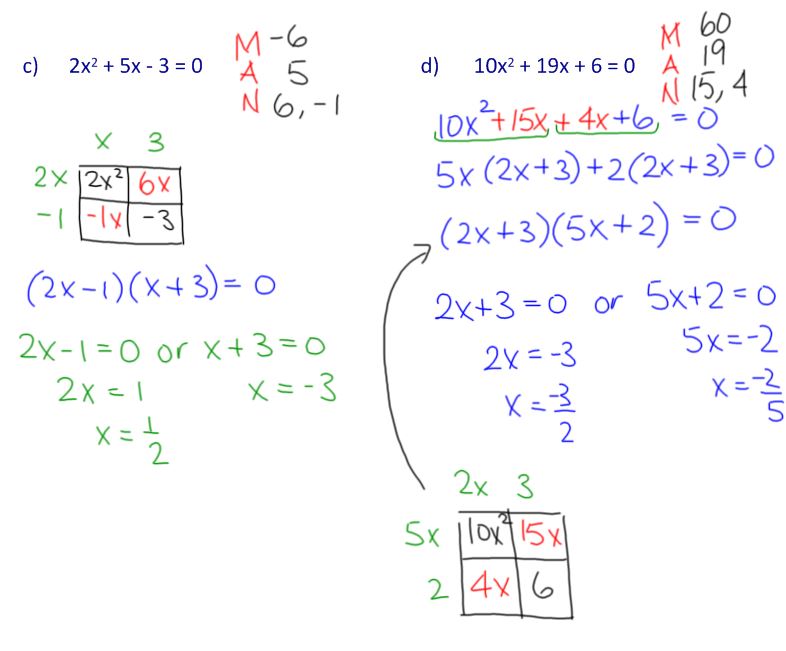 c) 2x² + 5x - 3 = 0
M -6
A 5
N 6, -1
x 3
2x 2x² 6x
-1 -1x -3
(2x-1)(x+3) = 0
2x-1=0 or x+3=0
2x = 1 x = -3
x = 1/2
d) 10x² + 19x + 6 = 0
M 60
A 19
N 15, 4
10x²+15x+4x+6 = 0
5x(2x+3)+2(2x+3)=0
(2x+3)(5x+2) = 0
2x+3=0 or 5x+2=0
2x = -3 5x=-2
x = -3/2 x = -2/5
2x 3
5x 10x² 15x
2 4x 6